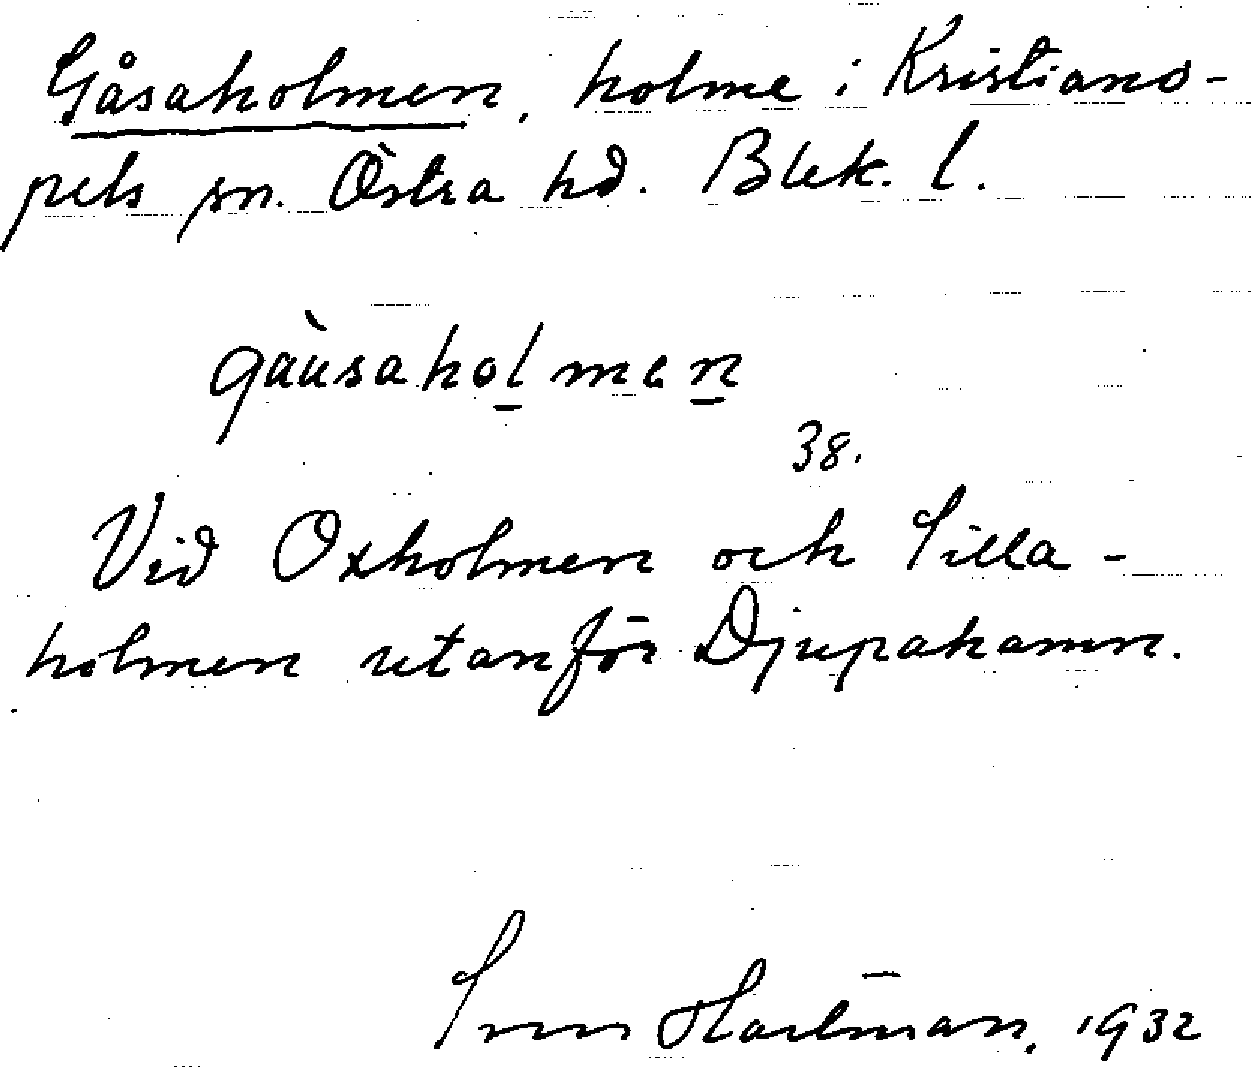 Gåsaholmen, holme i Kristiano-
pels sn. Östra hd. Blek. l.
gàusaholmen
38.
Vid Oxholmen och Silla-
holmen utanför Djupahamn.
Sven Hartman. 1932